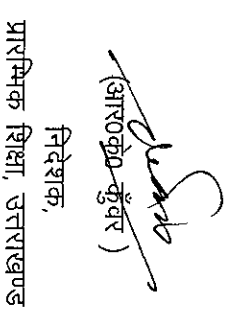 (आर०के० कुँवर)
निदेशक,
प्रारम्भिक शिक्षा, उत्तराखण्ड